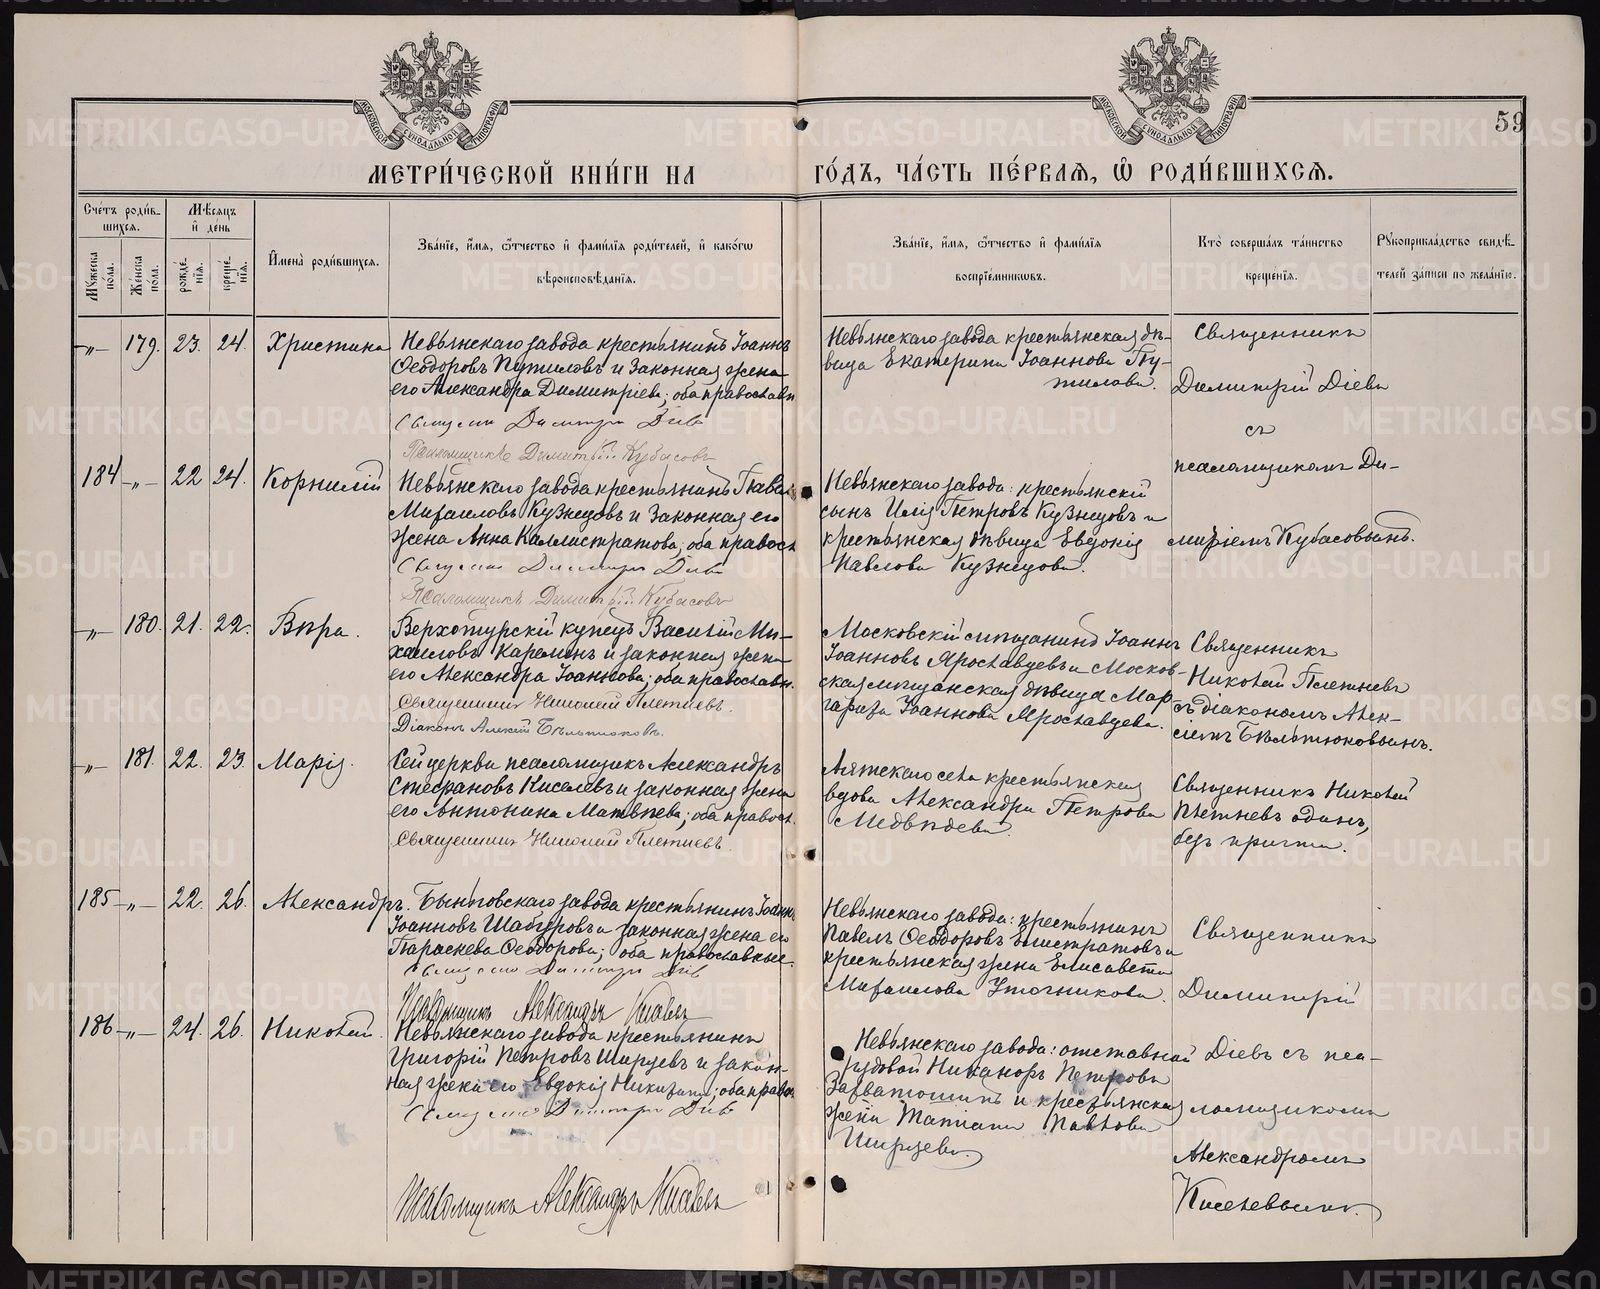 59
МЕТРИ́ЧЕСКОЙ КНИ́ГИ НА ГО́ДЪ, ЧА́СТЬ ПЕ́РВАѦ, Ѡ҆ РОДИ́ВШИХСѦ.
Сче́тъ роди́в-
шихся.
Мꙋ́жеска
пола.
Же́нска
по́ла.
Мѣ́сяцъ
и҆ де́нь
рожде-
нїя.
креще́-
нїя.
И҆мена̀ роди́вшихся.
Зва́нїе, и҆́мя, ѻ҆́тчество и҆ фами́лїя роди́телей, и҆ како́гѡ
вѣроисповѣ́данїя.
Зва́нїе, и҆́мя, ѻ҆́тчество и҆ фами́лїя
воспрїе́мникѡвъ.
Кто̀ соверша́лъ та́инство
креще́нїя.
Рꙋкоприкла́дство свидѣ́-
телей за́писи по жела́нїю.
-"- 179. 23. 24. Христина
Невьянскаго завода крестьянинъ Іоаннъ
Ѳеодоровъ Путиловъ и законная жена
его Александра Димитріева; оба православн
Священникъ Димитрій Діевъ
Псаломщикъ Димитрій Кубасовъ
Невьянскаго завода крестьянская дѣ-
вица Екатерина Іоаннова Пу-
тилова.
Священникъ
Димитрій Діевъ
съ
псаломщикомъ Ди-
митріемъ Кубасовымъ.
184 -"- 22 24. Корнилій
Невьянскаго завода крестьянинъ Павелъ
Михаиловъ Кузнецовъ и законная его
жена Анна Каллистратова; оба правосл
Священникъ Димитрій Діевъ
Псаломщикъ Димитрій Кубасовъ
Невьянскаго завода: крестьянскій
сынъ Илія Петровъ Кузнецовъ и
крестьянская дѣвица Евдокія
Павлова Кузнецова.
-"- 180. 21. 22. Вѣра.
Верхотурскій купецъ Василій Ми-
хаиловъ и законная жена
его Александра Іоаннова; оба православн.
Священникъ Николай Плетневъ.
Діаконъ Алексій Бѣльтюковъ.
Московскій мѣщанинъ Іоаннъ
Іоанновъ Ярославцевъ и Москов-
ская мѣщанская дѣвица Мар
гарита Іоаннова Ярославцева.
Священникъ
Николай Плетневъ
съ діакономъ Алек-
сіемъ Бѣльтюковымъ.
-"- 181. 22. 23. Марія.
Сей церкви псаломщикъ Александръ
Стефановъ Киселевъ и законная жена
его Антонина Матвѣева; оба правосл.
Священникъ Николай Плетневъ.
Аятскаго села крестьянская
вдова Александра Петрова
Медвѣдева.
Священникъ Николай
Плетневъ одинъ,
безъ причта.
185 -"- 22. 26. Александръ.
Быньговскаго завода крестьянинъ Іоаннъ
Іоанновъ Шабуровъ и законная жена его
Параскева Ѳеодорова; оба православные.
Священникъ Димитрій Діевъ
Псаломщикъ Александръ Киселевъ
Невьянскаго завода: крестьянинъ
Павелъ Ѳеодоровъ Елистратовъ и
крестьянская жена Елисавета
Михаилова Уточникова.
Священникъ
Димитрій
Діевъ съ пса-
ломщикомъ
Александромъ
Киселевымъ.
186 -"- 24. 26. Николай.
Невьянскаго завода крестьянинъ
Григорій Петровъ Ширяевъ и закон-
ная жена его Евдокія Никитина; оба право
Священникъ Димитрій Діевъ
Псаломщикъ Александръ Киселевъ
Невьянскаго завода: отставной
рядовой Никаноръ Петровъ
и крестьянская
жена Татіана Павлова
Ширяева.